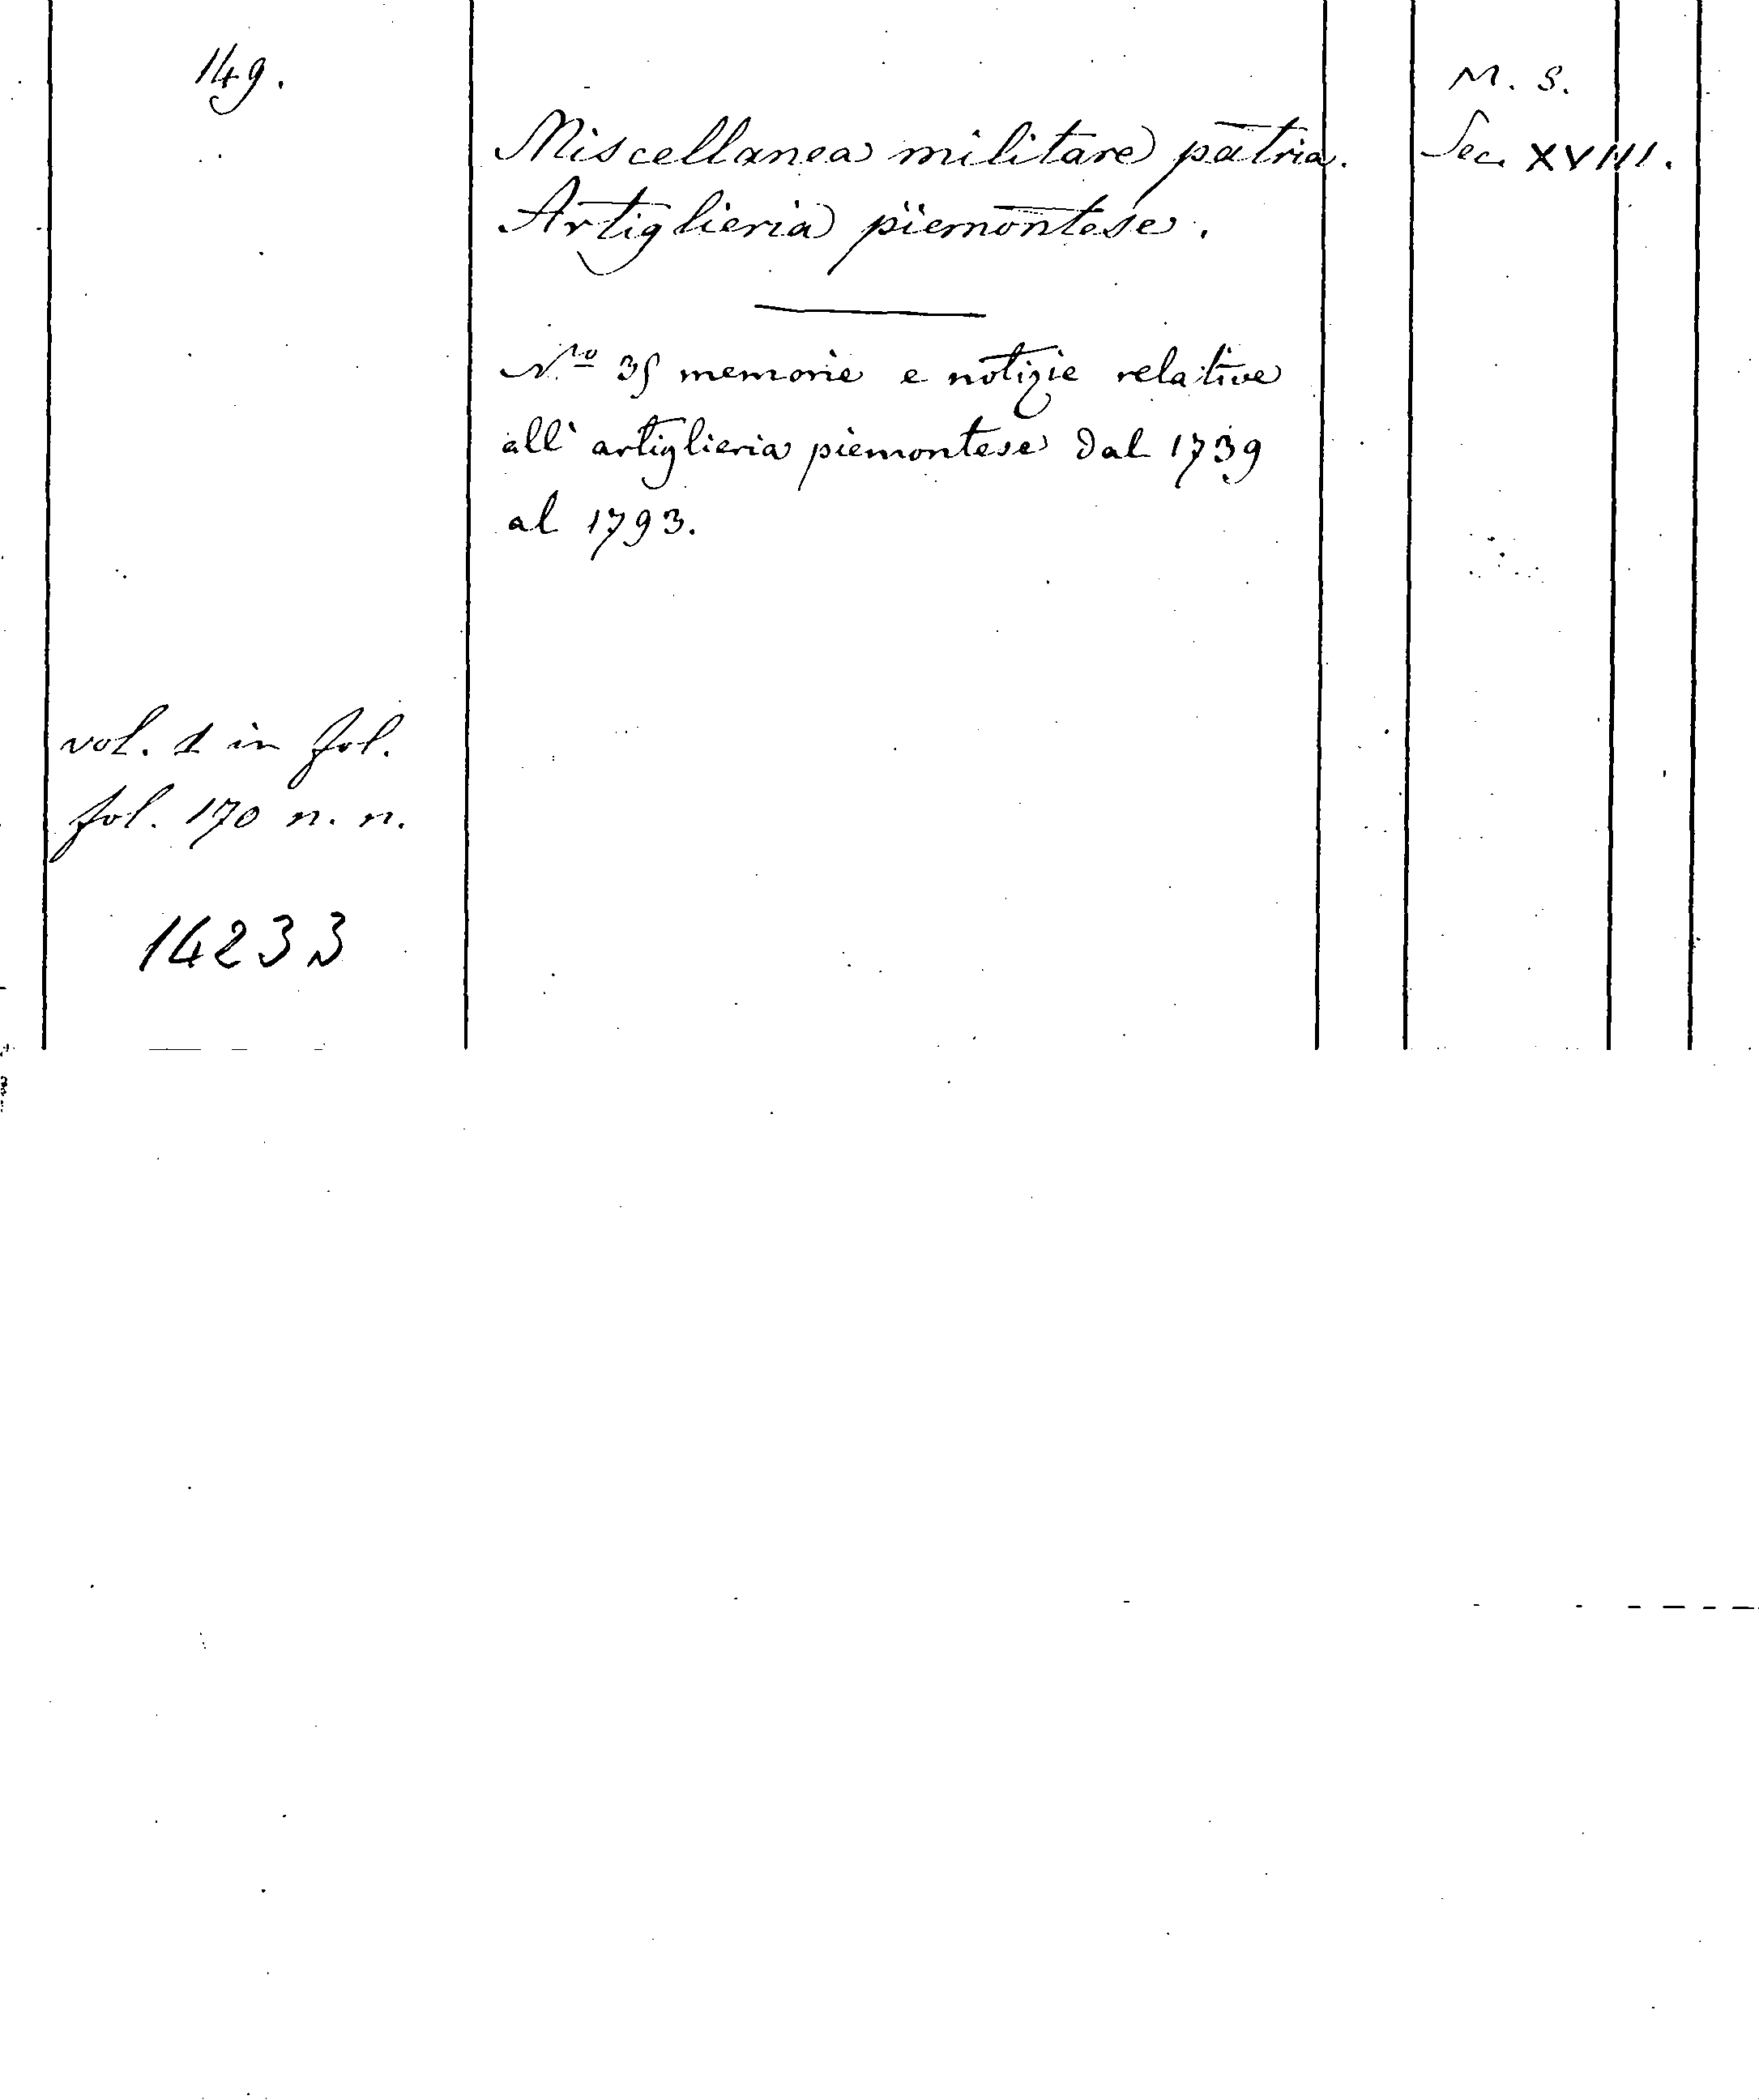 149.
Miscellanea militare patria.
Artiglieria piemontese.
N.º 35 memorie e notizie relative
all' artiglieria piemontese dal 1739
al 1793.
M. S.
Sec. XVIII.
vol. 1 in fol.
fol. 170 n. n.
14233